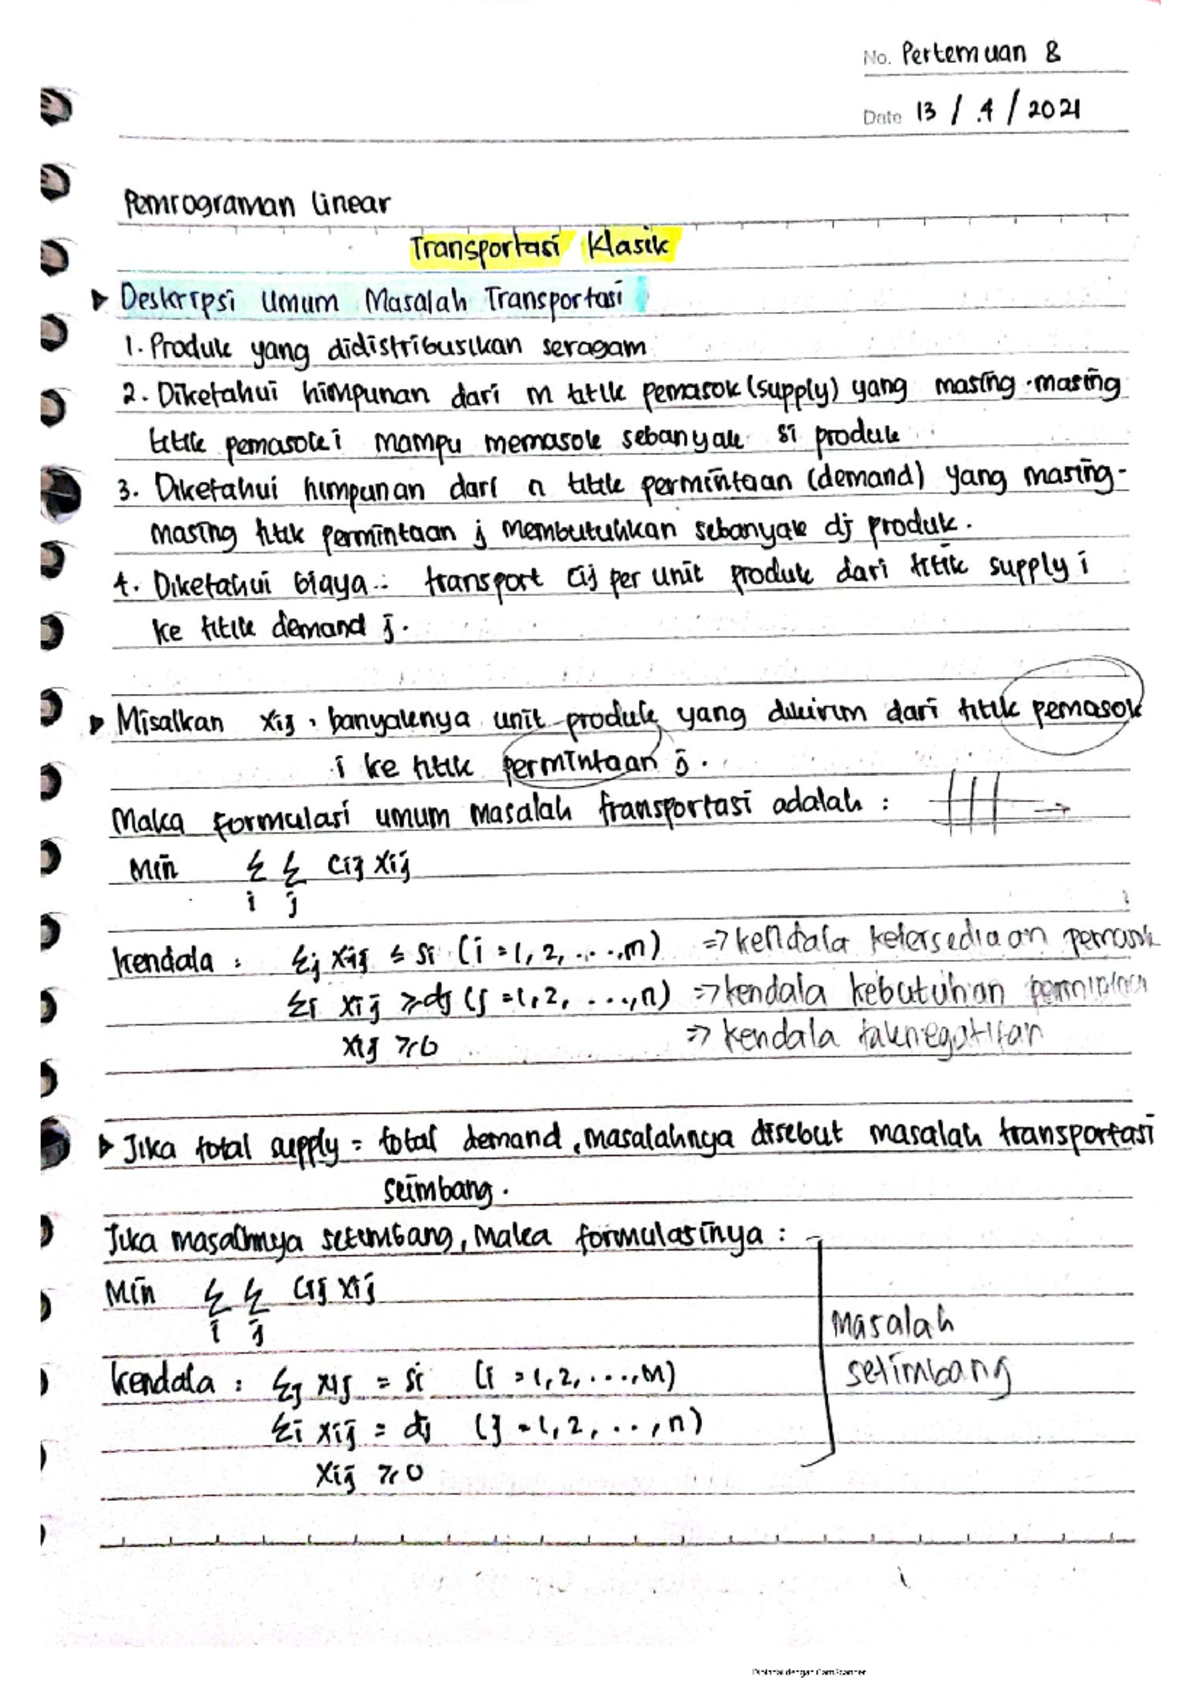 No. Pertemuan 8
Date 13 / 4 / 2021
Pemrograman Linear
Transportasi Klasik
Deskripsi Umum Masalah Transportasi
1. Produk yang didistribusikan seragam
2. Diketahui himpunan dari m titik pemasok (supply) yang masing-masing
titik pemasok i mampu memasok sebanyak si produk
3. Diketahui himpunan dari n titik permintaan (demand) yang masing-
masing titik permintaan j membutuhkan sebanyak dj produk.
4. Diketahui biaya transport cij per unit produk dari titik supply i
ke titik demand j.
Misalkan xij, banyaknya unit produk yang dikirim dari titik pemasok
i ke titik permintaan j.
Maka formulasi umum masalah transportasi adalah :
Min Σ Σ cij xij
i j
kendala : Σj xij ≤ si (i = 1, 2, ..., m) => kendala ketersediaan pemasok
Σi xij ≥ dj (j = 1, 2, ..., n) => kendala kebutuhan permintaan
xij ≥ 0 => kendala taknegatifan
Jika total supply = total demand, masalahnya disebut masalah transportasi
seimbang.
Jika masalhnya setimbang, maka formulasinya :
Min Σ Σ cij xij
i j
Masalah
setimbang
kendala : Σj xij = si (i = 1, 2, ..., m)
Σi xij = dj (j = 1, 2, .., n)
xij ≥ 0
Dipindai dengan CamScanner